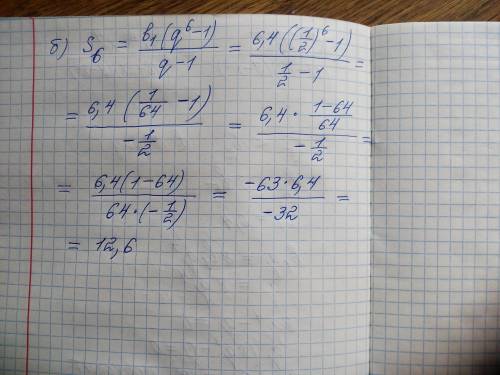 б) S₆ = b₁(q⁶-1)/(q-1) = 6,4((1/2)⁶-1)/(1/2-1) =
= 6,4(1/64-1)/(-1/2) = 6,4·(1-64)/64/(-1/2) =
= 6,4(1-64)/(64·(-1/2)) = -63·6,4/-32 =
= 12,6